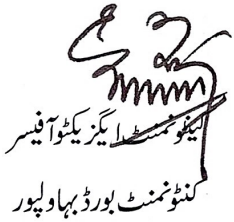 کنٹونمنٹ ایگزیکٹو آفیسر
کنٹونمنٹ بورڈ بہاولپور